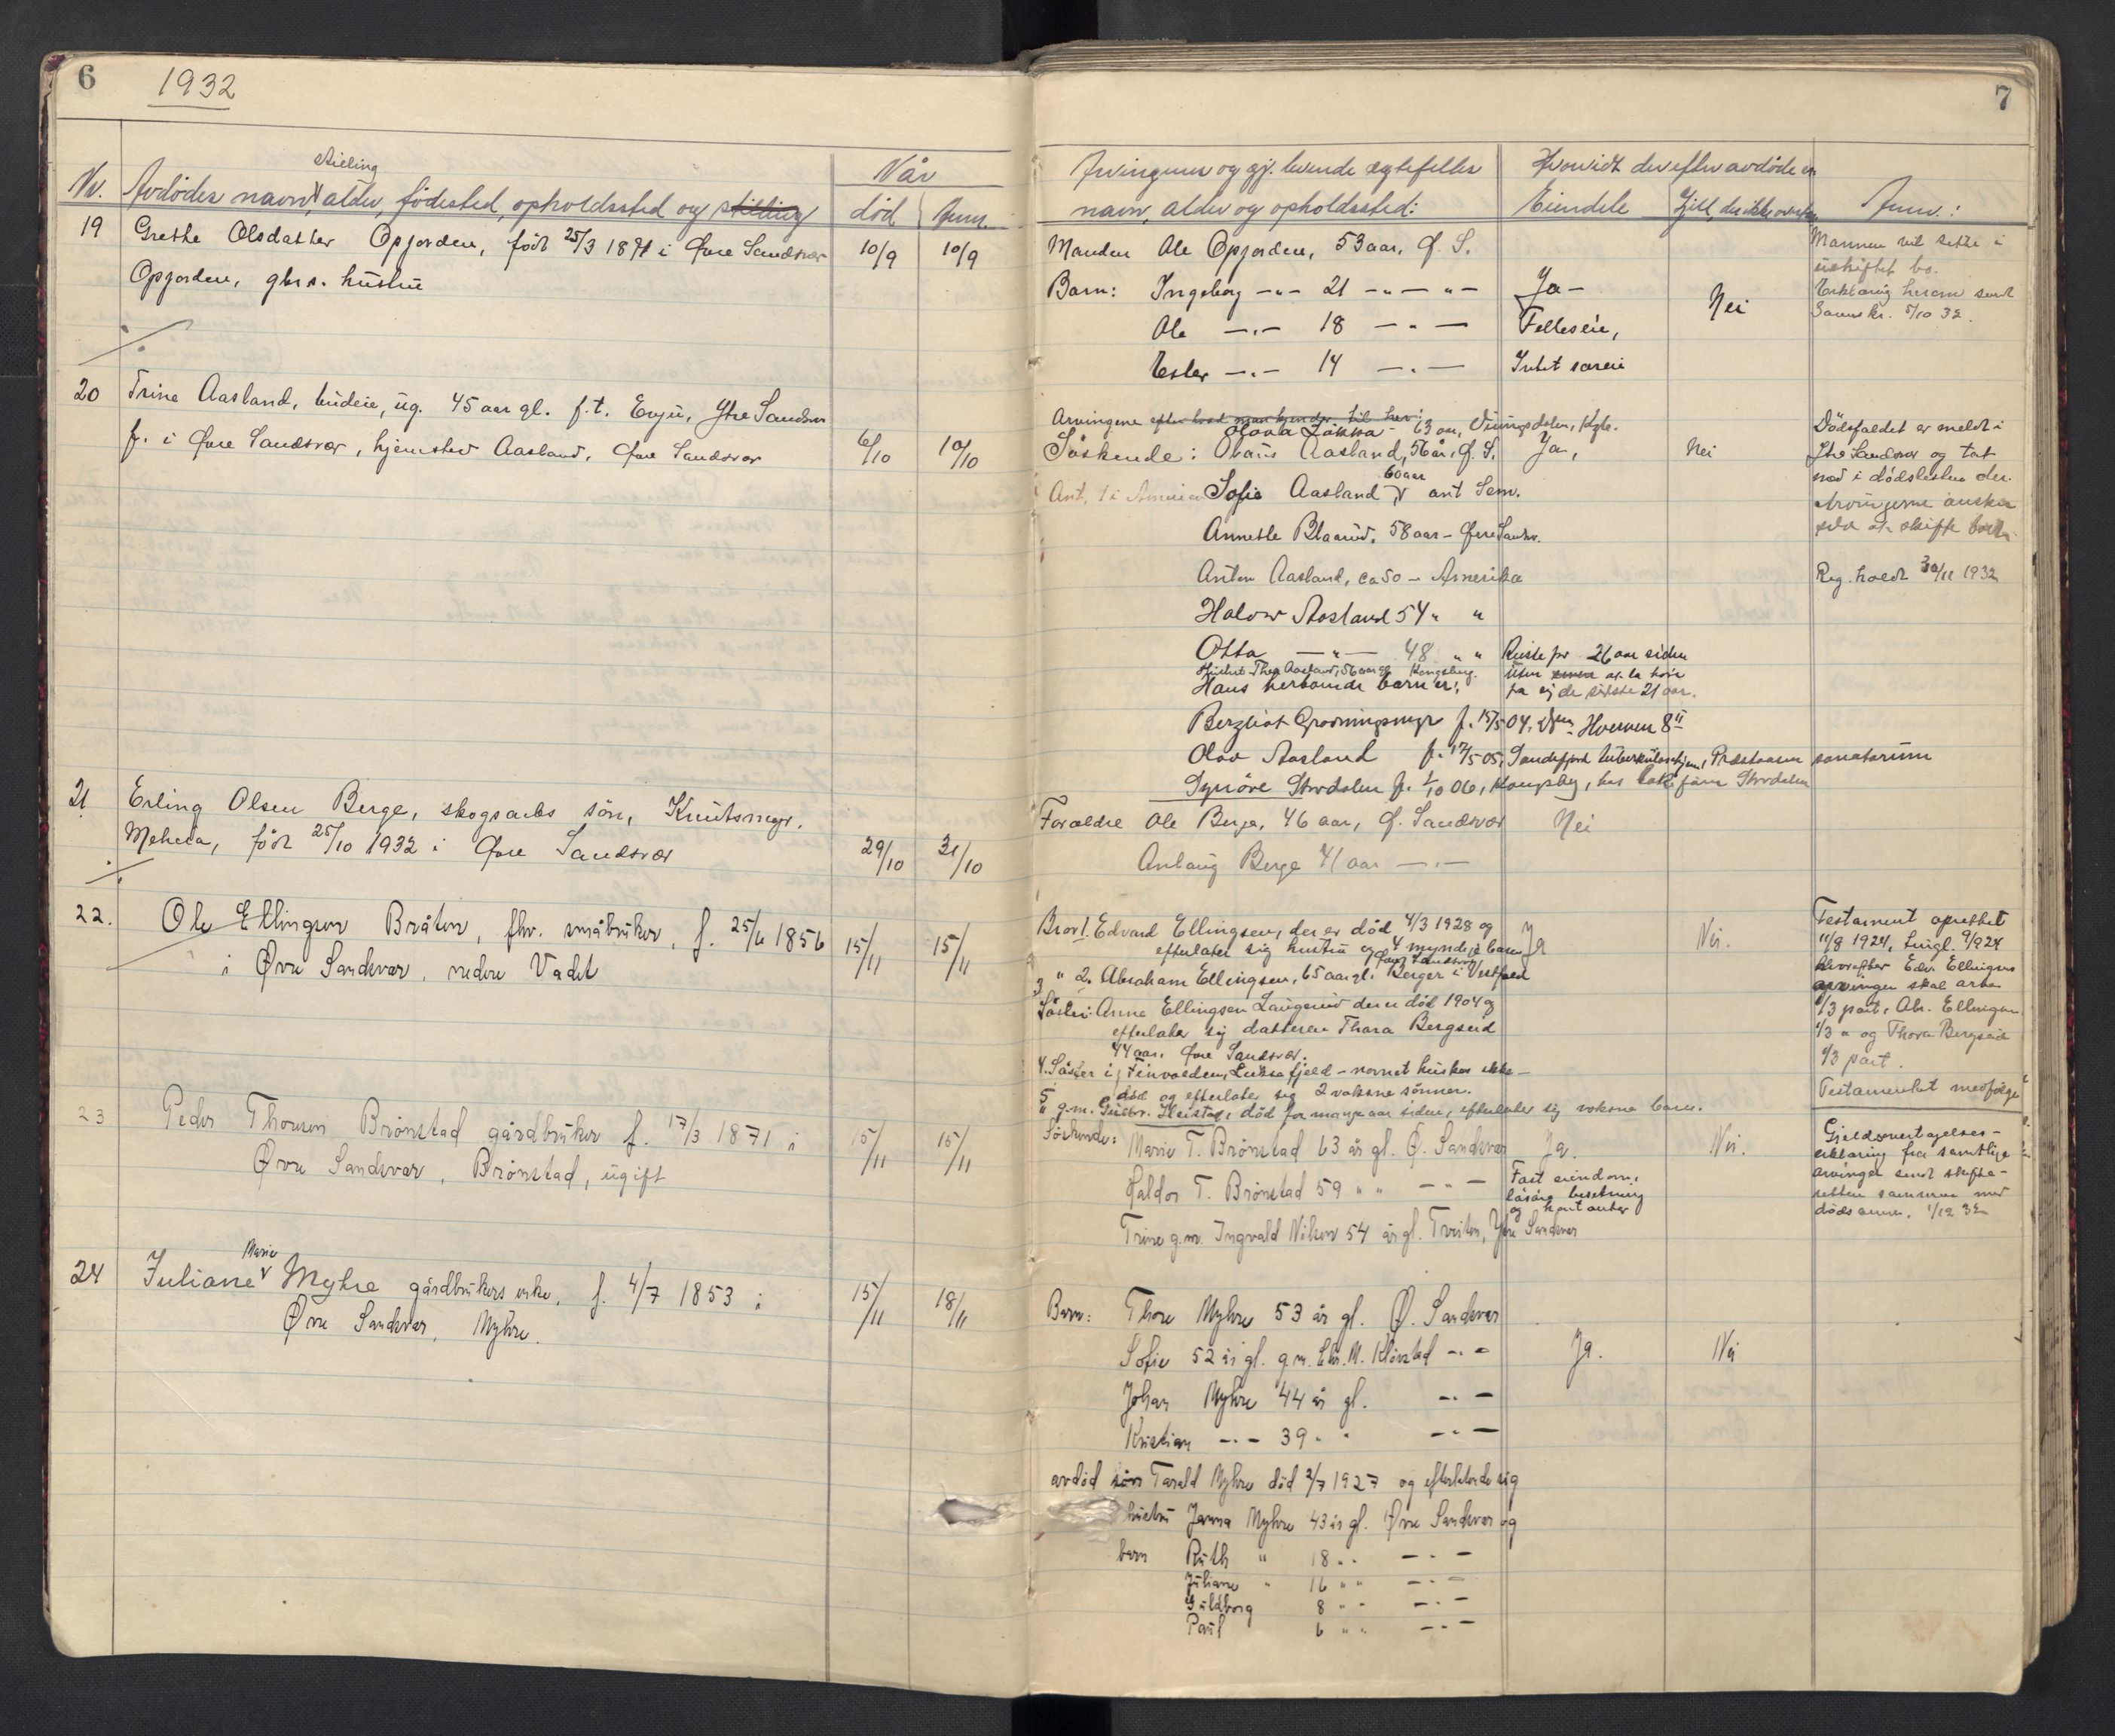 6
1932
Nr. Avdødes navn, stilling, alder, fødested, opholdssted og stilling
Når
død Anm.
19 Grethe Olsdatter Opjorden, født 25/3 1871 i Øvre Sandsvær 10/9 10/9
Opjorden, gbrs. hustru
20 Trine Aasland, budeie, ug. 45 aar gl. f.t. Enju, Ytre Sandsvr
f. i Øvre Sandsvær, hjemsted Aasland, Øvre Sandsvær 6/10 10/10
21 Erling Olsen Berge, skogsarbs søn, Knutsmyr.
Meheia, født 25/10 1932 i Øvre Sandsvær 29/10 31/10
22. Ole Ellingsen Bråten, fhv. småbruker, f. 25/6 1856 15/11 15/11
i Øvre Sandsvær, nedre Vadet
23 Peder Thorsen Brönstad gårdbruker f. 17/3 1871 i 15/11 15/11
Øvre Sandsvær, Brönstad, ugift
24 Juliane Marie Myhre gårdbrukers enke. f. 4/7 1853 i 15/11 18/11
Øvre Sandsvær, Myhre.
7
Arvingenes og gj. levende egtefelles
navn, alder og opholdssted:
Hvorvidt der efter avdøde er
Eiendele
Anm.:
Manden Ole Opjorden, 53 aar, Ø. S.
Barn: Ingeborg -"- 21 -"- -"- Ja - Nei
Ole -"- 18 -"- Felleseie,
Ester -"- 14 -"- Intet særeie
Mannen vil sitte i
uskiftet bo.
Erklæring herom sendt
Sorenskr. 5/10 32.
Arvingene efter hvad man kjender til her:
Olava Løkka - 63 aar,
Søskende: Olaus Aasland, 56 år, Ø. S. Ja, Nei
Ant. 1 i Amerika Sofie Aasland 60 aar ant Sem.
Annette Blaarud, 58 aar - Øvre Sandsv.
Anton Aasland, ca 50 - Amerika
Halvor Aasland 54 " "
Otto -"- 48 " " Reiste for 26 aar siden
Uten at la høre
fra sig de sidste 21 aar.
Hustru Thea Aasland, 56 aar Kongsberg.
Hans herværende barn er:
Bergliot Grosvningsmyr f. 15/5 04, Hvervven 8 II
Olav Aasland f. 17/5 05, Sandefjord tuberkulosehjem, Præstaasen sanatorium
Synöve Stordalen f. 1/10 06, Kongsberg, hos Stordalen
Dødsfaldet er meldt i
Ytre Sandsvær og tat
med i dødslisten der.
Arvingerne ønsker
selv at skifte boet.
Reg. holdt 30/11 1932
Forældre Ole Berge, 46 aar, Ø. Sandsvær Nei
Anlaug Berge 41 aar -"-
Bror 1. Edvard Ellingsen, der er død 4/3 1928 og Ja Nei.
efterlater sig hustru og 4 myndige barn
Øvre Sandsvær
" 2. Abraham Ellingsen, 65 aar gl. Berger i Vestfold
3 Søster: Anne Ellingsen Laugerud der er död 1904 og
efterlater sig datteren Thora Bergseid
44 aar. Øvre Sandsvær.
4. Søster i Luksefjeld - navnet huskes ikke -
död og efterlater sig 2 voksne sönner.
5 " g.m. Gudbr. Heistad, död for mange aar siden, efterlater sig voksne barn.
Testament oprettet
11/8 1924, tingl. 9/9 24
hvorefter Edv. Ellingsens
arvinger skal arve
1/3 part, Abr. Ellingsen
1/3 " og Thora Bergseid
1/3 part.
Testamentet medfølger
Söskende: Marie T. Brönstad 63 år gl. Ø. Sandsvær Ja. Nei.
Haldor T. Brönstad 59 " " -"- Fast eiendom,
lösöre besetning
og kontanter
Trine g.m. Ingvald Nilsen 54 år gl. Tveiten, Ytre Sandsvær
Gjeldsovertagelses-
erklæring fra samtlige
arvinger sendt skifte-
retten sammen med
dödsanm. 1/12 32
Barn: Thore Myhre 53 år gl. Ø. Sandsvær
Sofie 52 år gl. g.m. Chr. M. Klövstad -"- Ja. Nei
Johan Myhre 44 år gl. -"-
Kristian -"- 39 " " -"-
avdöd sön Tarald Myhre död 2/7 1927 og efterlatende sig
hustru Janna Myhre 43 år gl. Øvre Sandsvær og
barn Ruth " 18 " " -"-
Juliane " 16 " " -"-
Guldborg 8 " " -"-
Paul 6 " " -"-